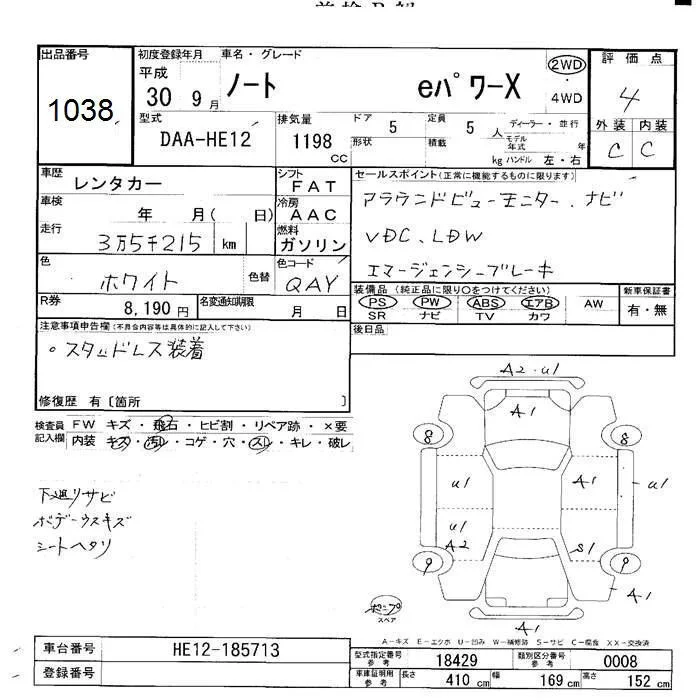 出品番号
1038
初度登録年月
平成
30 9月
車名・グレード
ノート eパワーX
2WD
4WD
評価点
4
外装 内装
C C
型式
DAA-HE12
排気量
1198 cc
ドア 5
形状
定員 5 人
積載 kg
ディーラー・並行
モデル年式 年
ハンドル 左・右
車歴
レンタカー
車検
年 月( 日)
走行
3万5千215 km
シフト
FAT
冷房
AAC
燃料
ガソリン
セールスポイント(正常に機能するものに限ります)
アラウンドビューモニター、ナビ
VDC、LDW
エマージェンシーブレーキ
色
ホワイト
色替
色コード
QAY
R券
8,190円
名変通知期限
月 日
装備品(純正品に限り○をつけてください)
PS PW ABS エアB AW
SR ナビ TV カワ
新車保証書
有・無
後日品
注意事項申告欄(不具合内容等は具体的に記入して下さい)
。スタッドレス装着
修復歴 有〔箇所 〕
検査員記入欄
FW キズ・飛石・ヒビ割・リペア跡・×要
内装 キズ・汚れ・コゲ・穴・スレ・キレ・破レ
下廻リサビ
ボデーウスキズ
シートヘタリ
A2・U1
A1
8 8
U1 A1 U1
U1
A2 S1
9 9
A1
A1
スペア
A-キズ E-エクボ U-凹み W-補修跡 S-サビ C-腐食 XX-交換済
車台番号
HE12-185713
登録番号
型式指定番号
参考
18429
類別区分番号
参考
0008
車庫証明用
参考
長さ 410 cm
幅 169 cm
高さ 152 cm